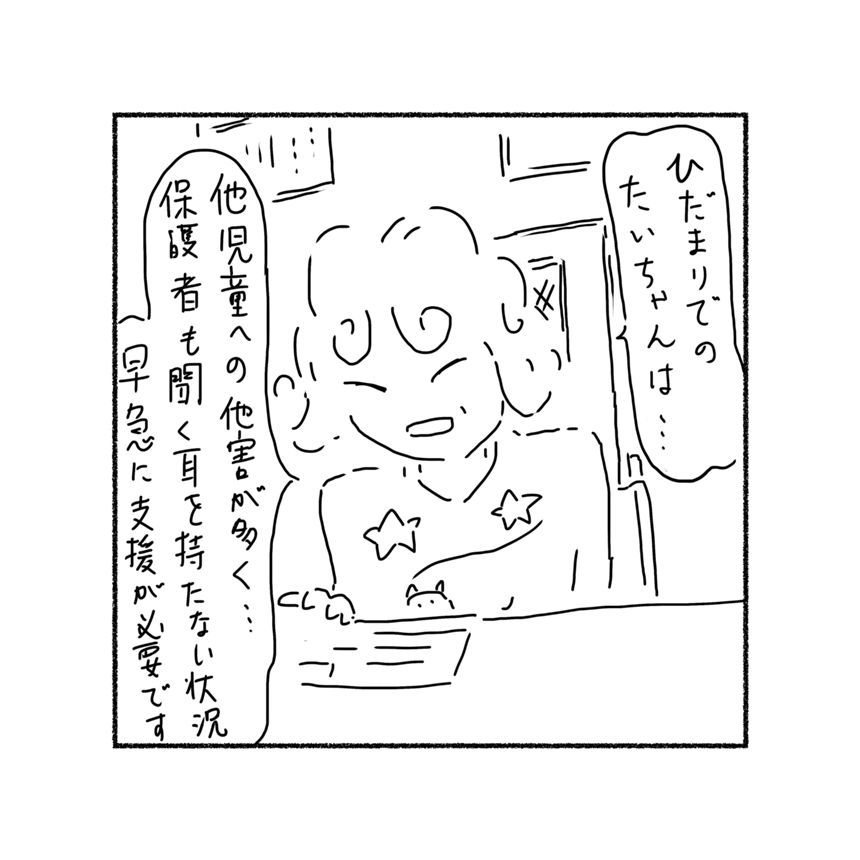 ひだまりでの
たいちゃんは…
他児童への他害が多く…
保護者も聞く耳を持たない状況
早急に支援が必要です